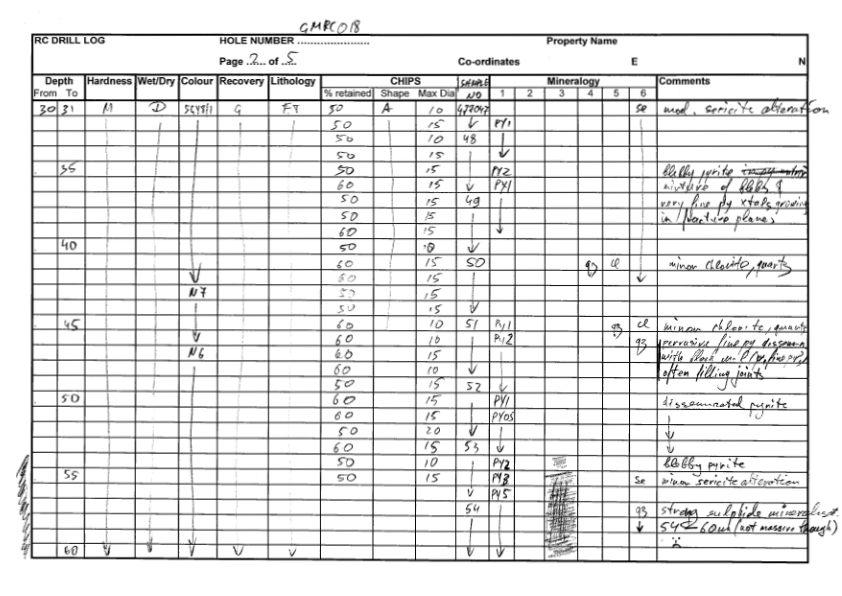 GMRC018
RC DRILL LOG HOLE NUMBER ...................... Property Name
Page ..2... of ..5.. Co-ordinates E N
Depth Hardness Wet/Dry Colour Recovery Lithology CHIPS SAMPLE Mineralogy Comments
From To % retained Shape Max Dia NO 1 2 3 4 5 6
30 31 M D G FT 50 A 10 477047 Se mod. sericite alteration
50 15 PY1
50 10 48
50 15
35 50 15 PY2 blebby pyrite
60 15 PY1 mixture of blebs &
50 15 49 very fine py xtals growing
50 15 in fracture planes
60 15
40 50 10
60 15 50 qz cl minor chlorite, quartz
60 15
N7 50 15
50 15
45 60 10 51 Py1 qz cl minor chlorite, quartz
60 10 Py2 qz pervasive fine py dissemin
N6 60 15 with
60 10 often filling joints
50 15 52
50 60 15 PY1 disseminated pyrite
60 15 PY05
50 20
60 15 53
50 10 PY2 blebby pyrite
55 50 15 PY3 Se minor sericite alteration
PY5
54 qz strong sulphide mineralisat.
54-60m (not massive though)
60